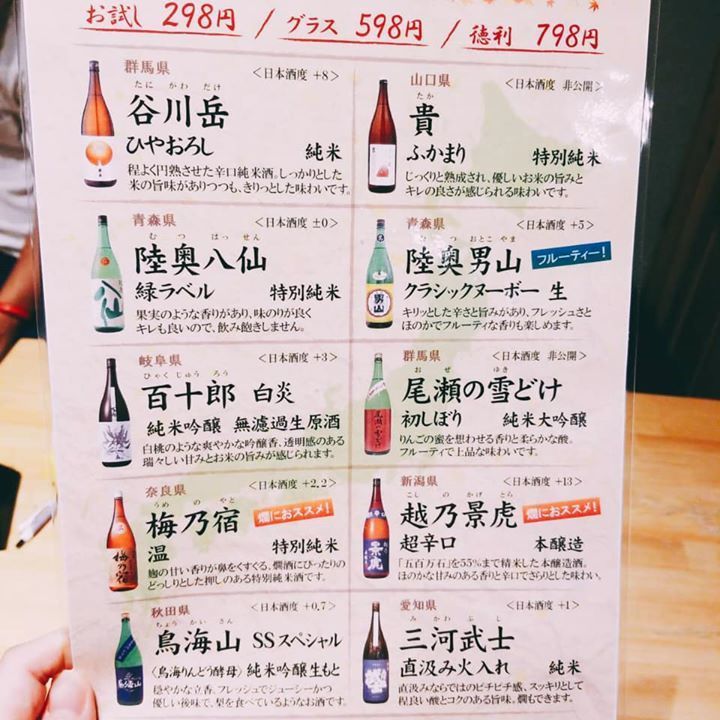 お試し 298円 / グラス 598円 / 徳利 798円
群馬県 <日本酒度 +8>
たに がわ だけ
谷川岳
ひやおろし 純米
程よく円熟させた辛口純米酒。しっかりとした
米の旨味がありつつも、きりっとした味わいです。
山口県 <日本酒度 非公開>
たか
貴
ふかまり 特別純米
じっくりと熟成され、優しいお米の旨みと
キレの良さが感じられる味わいです。
青森県 <日本酒度 ±0>
む つ はっ せん
陸奥八仙
緑ラベル 特別純米
果実のような香りがあり、味のりが良く
キレも良いので、飲み飽きしません。
青森県 <日本酒度 +5>
む つ おとこ やま
陸奥男山 フルーティー!
クラシックヌーボー 生
キリッとした辛さと旨みがあり、フレッシュさと
ほのかでフルーティな香りも楽しめます。
岐阜県 <日本酒度 +3>
ひゃく じゅう ろう
百十郎 白炎
純米吟醸 無濾過生原酒
白桃のような爽やかな吟醸香、透明感のある
瑞々しい甘みとお米の旨みが感じられます。
群馬県 <日本酒度 非公開>
お ぜ ゆき
尾瀬の雪どけ
初しぼり 純米大吟醸
りんごの蜜を思わせる香りと柔らかな酸。
フルーティで上品な味わいです。
奈良県 <日本酒度 +2.2>
うめ の やど
梅乃宿 燗におススメ!
温 特別純米
麹の甘い香りが鼻をすくする、燗酒にぴったりの
どっしりとした押しのある特別純米酒です。
新潟県 <日本酒度 +13>
こし の かげ とら
越乃景虎 燗におススメ!
超辛口 本醸造
「五百万石」を55%まで精米した本醸造酒。
ほのかな甘みのある香りと辛口でさらりとした味わい。
秋田県 <日本酒度 +0.7>
ちょう かい さん
鳥海山 SSスペシャル
〈鳥海りんどう酵母〉純米吟醸生もと
穏やかな立香。フレッシュでジューシーかつ
優しい後味で、梨を食べているようなお酒です。
愛知県 <日本酒度 +1>
み かわ ぶ し
三河武士
直汲み火入れ 純米
直汲みならではのピチピチ感、スッキリとして
程良い酸とコクのある旨味。燗もできます。